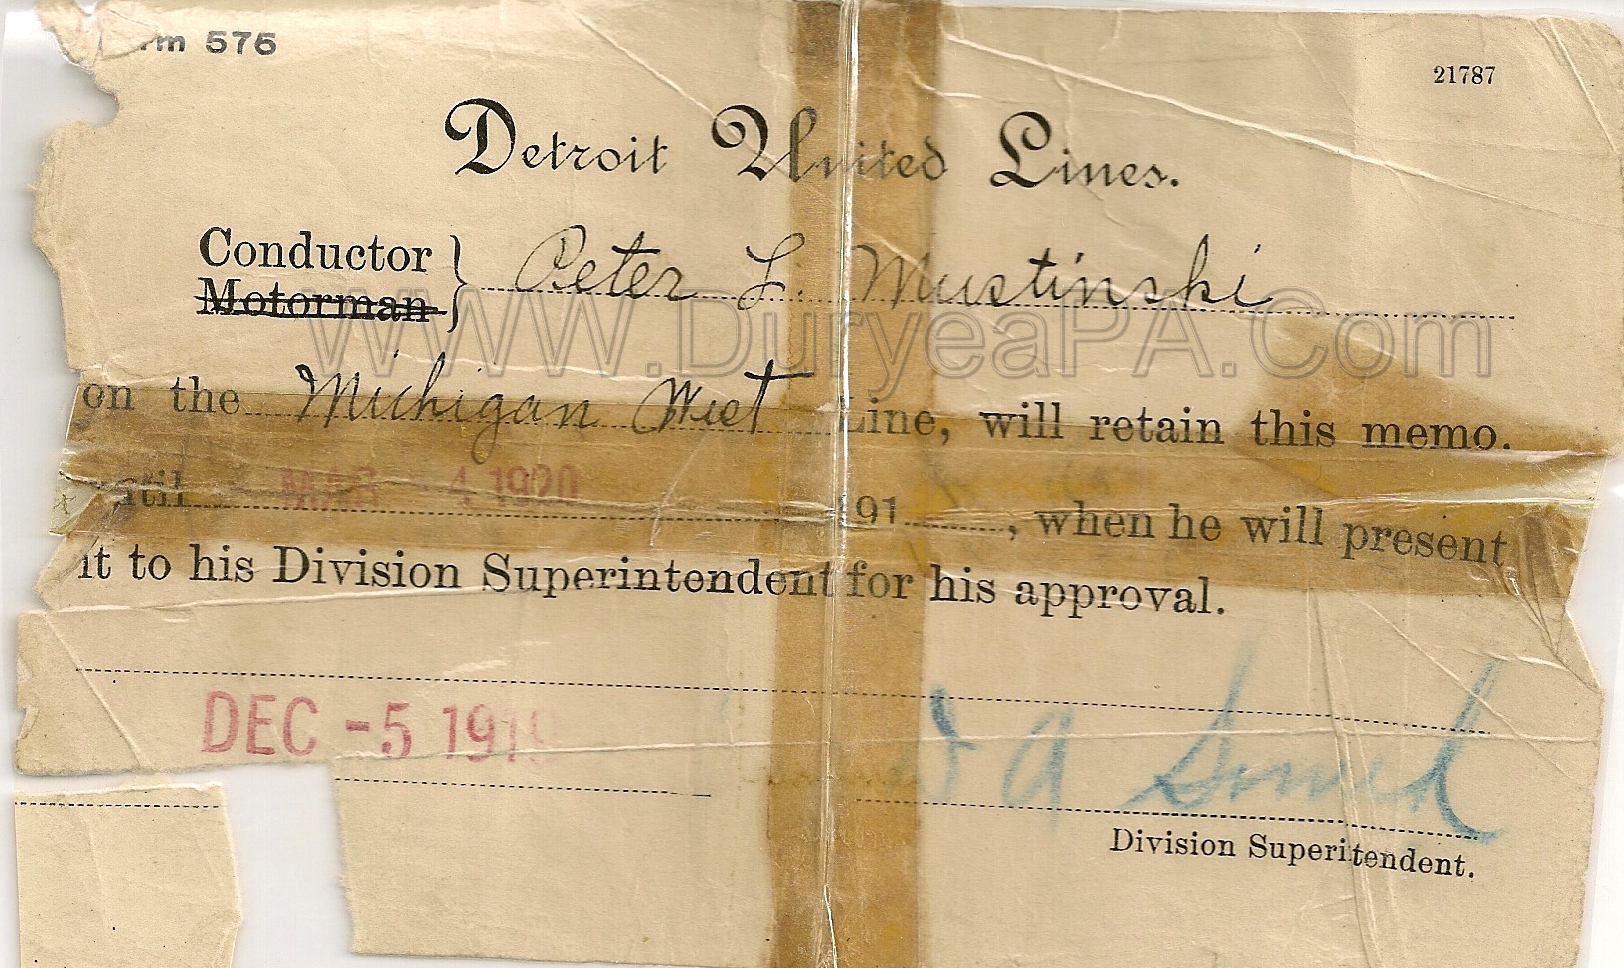 rm 576
21787
Detroit United Lines.
Conductor
Motorman } Peter L. Mustinski
WWW.DuryeaPA.Com
on the Michigan West Line, will retain this memo.
until MAR - 4 1920 191 , when he will present
it to his Division Superintendent for his approval.
DEC -5 1919
A
Division Superintendent.